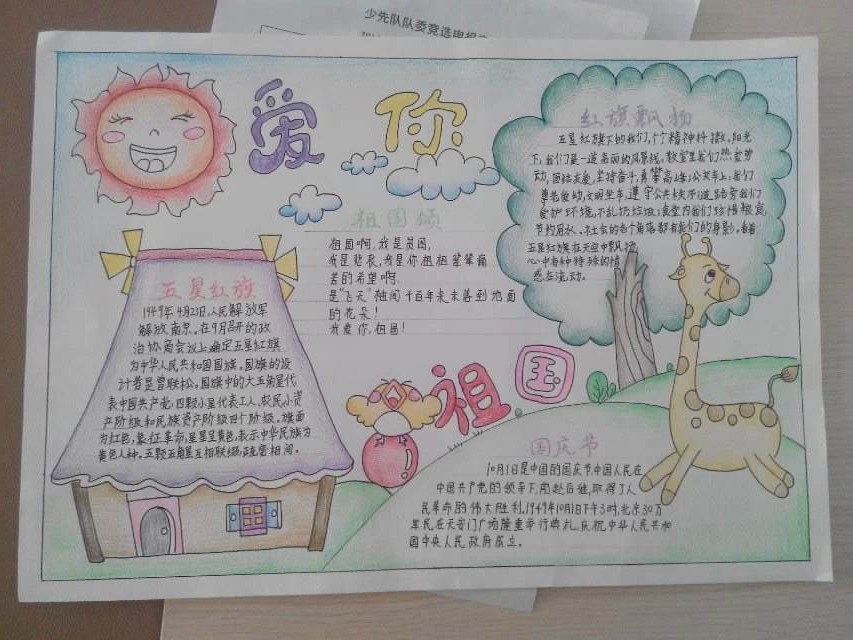 少先队队委竞选
爱你
红旗飘扬
五星红旗下的我们,个个精神抖擞,阳光
下,我们是一道亮丽的风景线。教室里我们热爱劳
动,团结友爱,坚持奋斗,勇攀高峰;公交车上,我们
尊老爱幼,文明坐车,遵守公共秩序;道路旁我们
爱护环境,不乱扔垃圾;食堂内我们珍惜粮食,
节约用水。社会的各个角落都有我们的身影。看着
五星红旗在天空中飘扬,
心中有种特殊的情
感在流动。
祖国颂
祖国啊,我是贫困,
我是悲哀,我是你祖祖辈辈痛
苦的希望啊,
是“飞天”袖间千百年来未落到地面
的花朵!
我爱你,祖国!
五星红旗
1949年4月23日,人民解放军
解放南京。在9月召开的政
治协商会议上确定五星红旗
为中华人民共和国国旗。国旗的设
计者是曾联松,国旗中的大五角星代
表中国共产党,四颗小星代表工人、农民、小资
产阶级和民族资产阶级四个阶级。旗面
为红色,象征革命,星呈黄色,表示中华民族为
黄色人种。五颗五角星互相联缀,疏密相间。
祖国
国庆节
10月1日是中国的国庆节,中国人民在
中国共产党的领导下,前赴后继,取得了人
民革命的伟大胜利,1949年10月1日下午3时,北京30万
军民在天安门广场隆重举行典礼,庆祝中华人民共和
国中央人民政府成立。